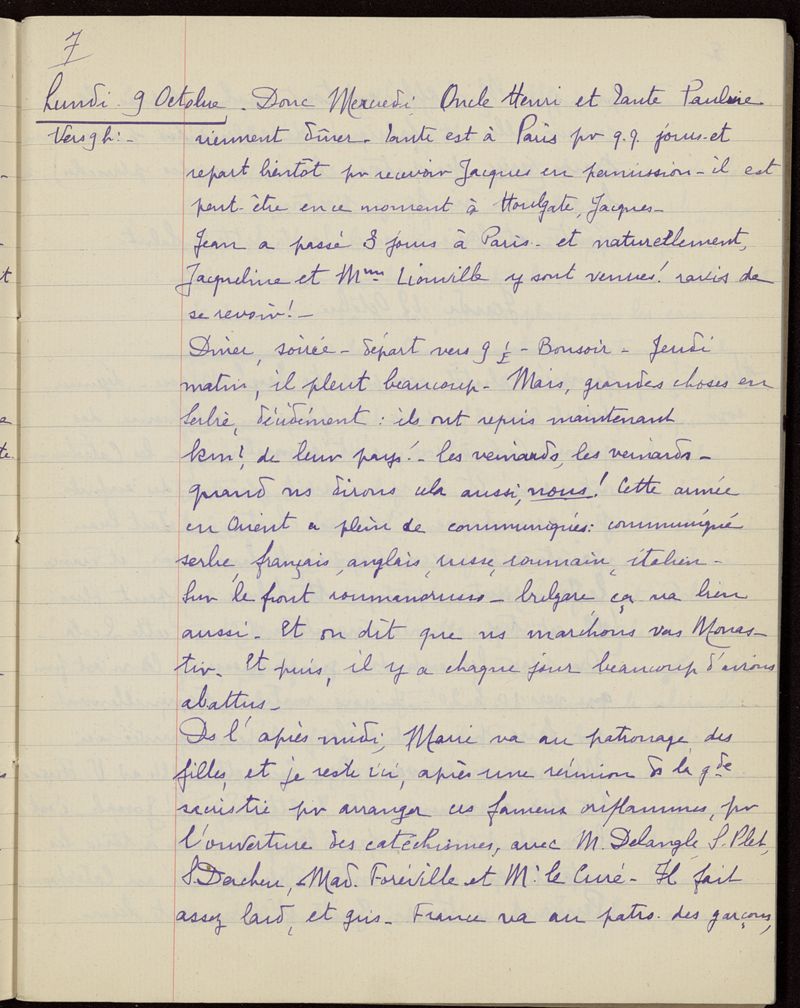 7
Lundi 9 Octobre. Donc Mercredi, Oncle Henri et Tante Pauline
Vers 9h: - viennent dîner - Tante est à Paris pr q.q. jours et
repart bientôt pr recevoir Jacques en permission - il est
peut-être en ce moment à Houlgate, Jacques -
Jean a passé 3 jours à Paris - et naturellement,
Jacqueline et Mme Liouville y sont venues! ravis de
se revoir! -
Dîner, soirée - départ vers 9 ½ - Bonsoir - Jeudi
matin, il pleut beaucoup - Mais, grandes choses en
Serbie, décidément : ils ont repris maintenant
km², de leur pays! - les veinards, les veinards -
quand ns dirons cela aussi, nous! Cette armée
en Orient a plein de communiqués: communiqué
serbe, français, anglais, russe, roumain, italien -
Sur le front roumanorusso - bulgare ça va bien
aussi - Et on dit que ns marchons vers Monas-
tir - Et puis, il y a chaque jour beaucoup d'avions
abattus -
Ds l'après midi, Marie va au patronage des
filles, et je reste ici, après une réunion ds la gde
sacristie pr arranger ces fameux oriflammes, pr
l'ouverture des catéchismes, avec M. Delangle, S. Plet,
S. , Mad. Foréville et Mr le Curé - Il fait
assez lard, et gris - France va au patro. des garçons,